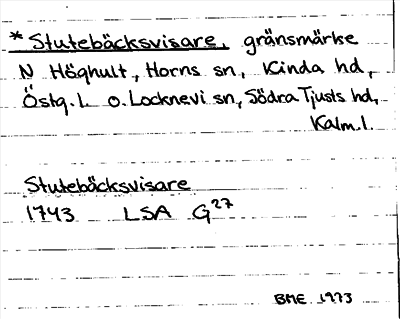 * Stutebäcksvisare, gränsmärke
N Höghult, Horns sn, Kinda hd,
Östg. L. o. Locknevi sn, Södra Tjusts hd,
Kalm. l.
Stutebäcksvisare
1743 LSA G27
BME 1973